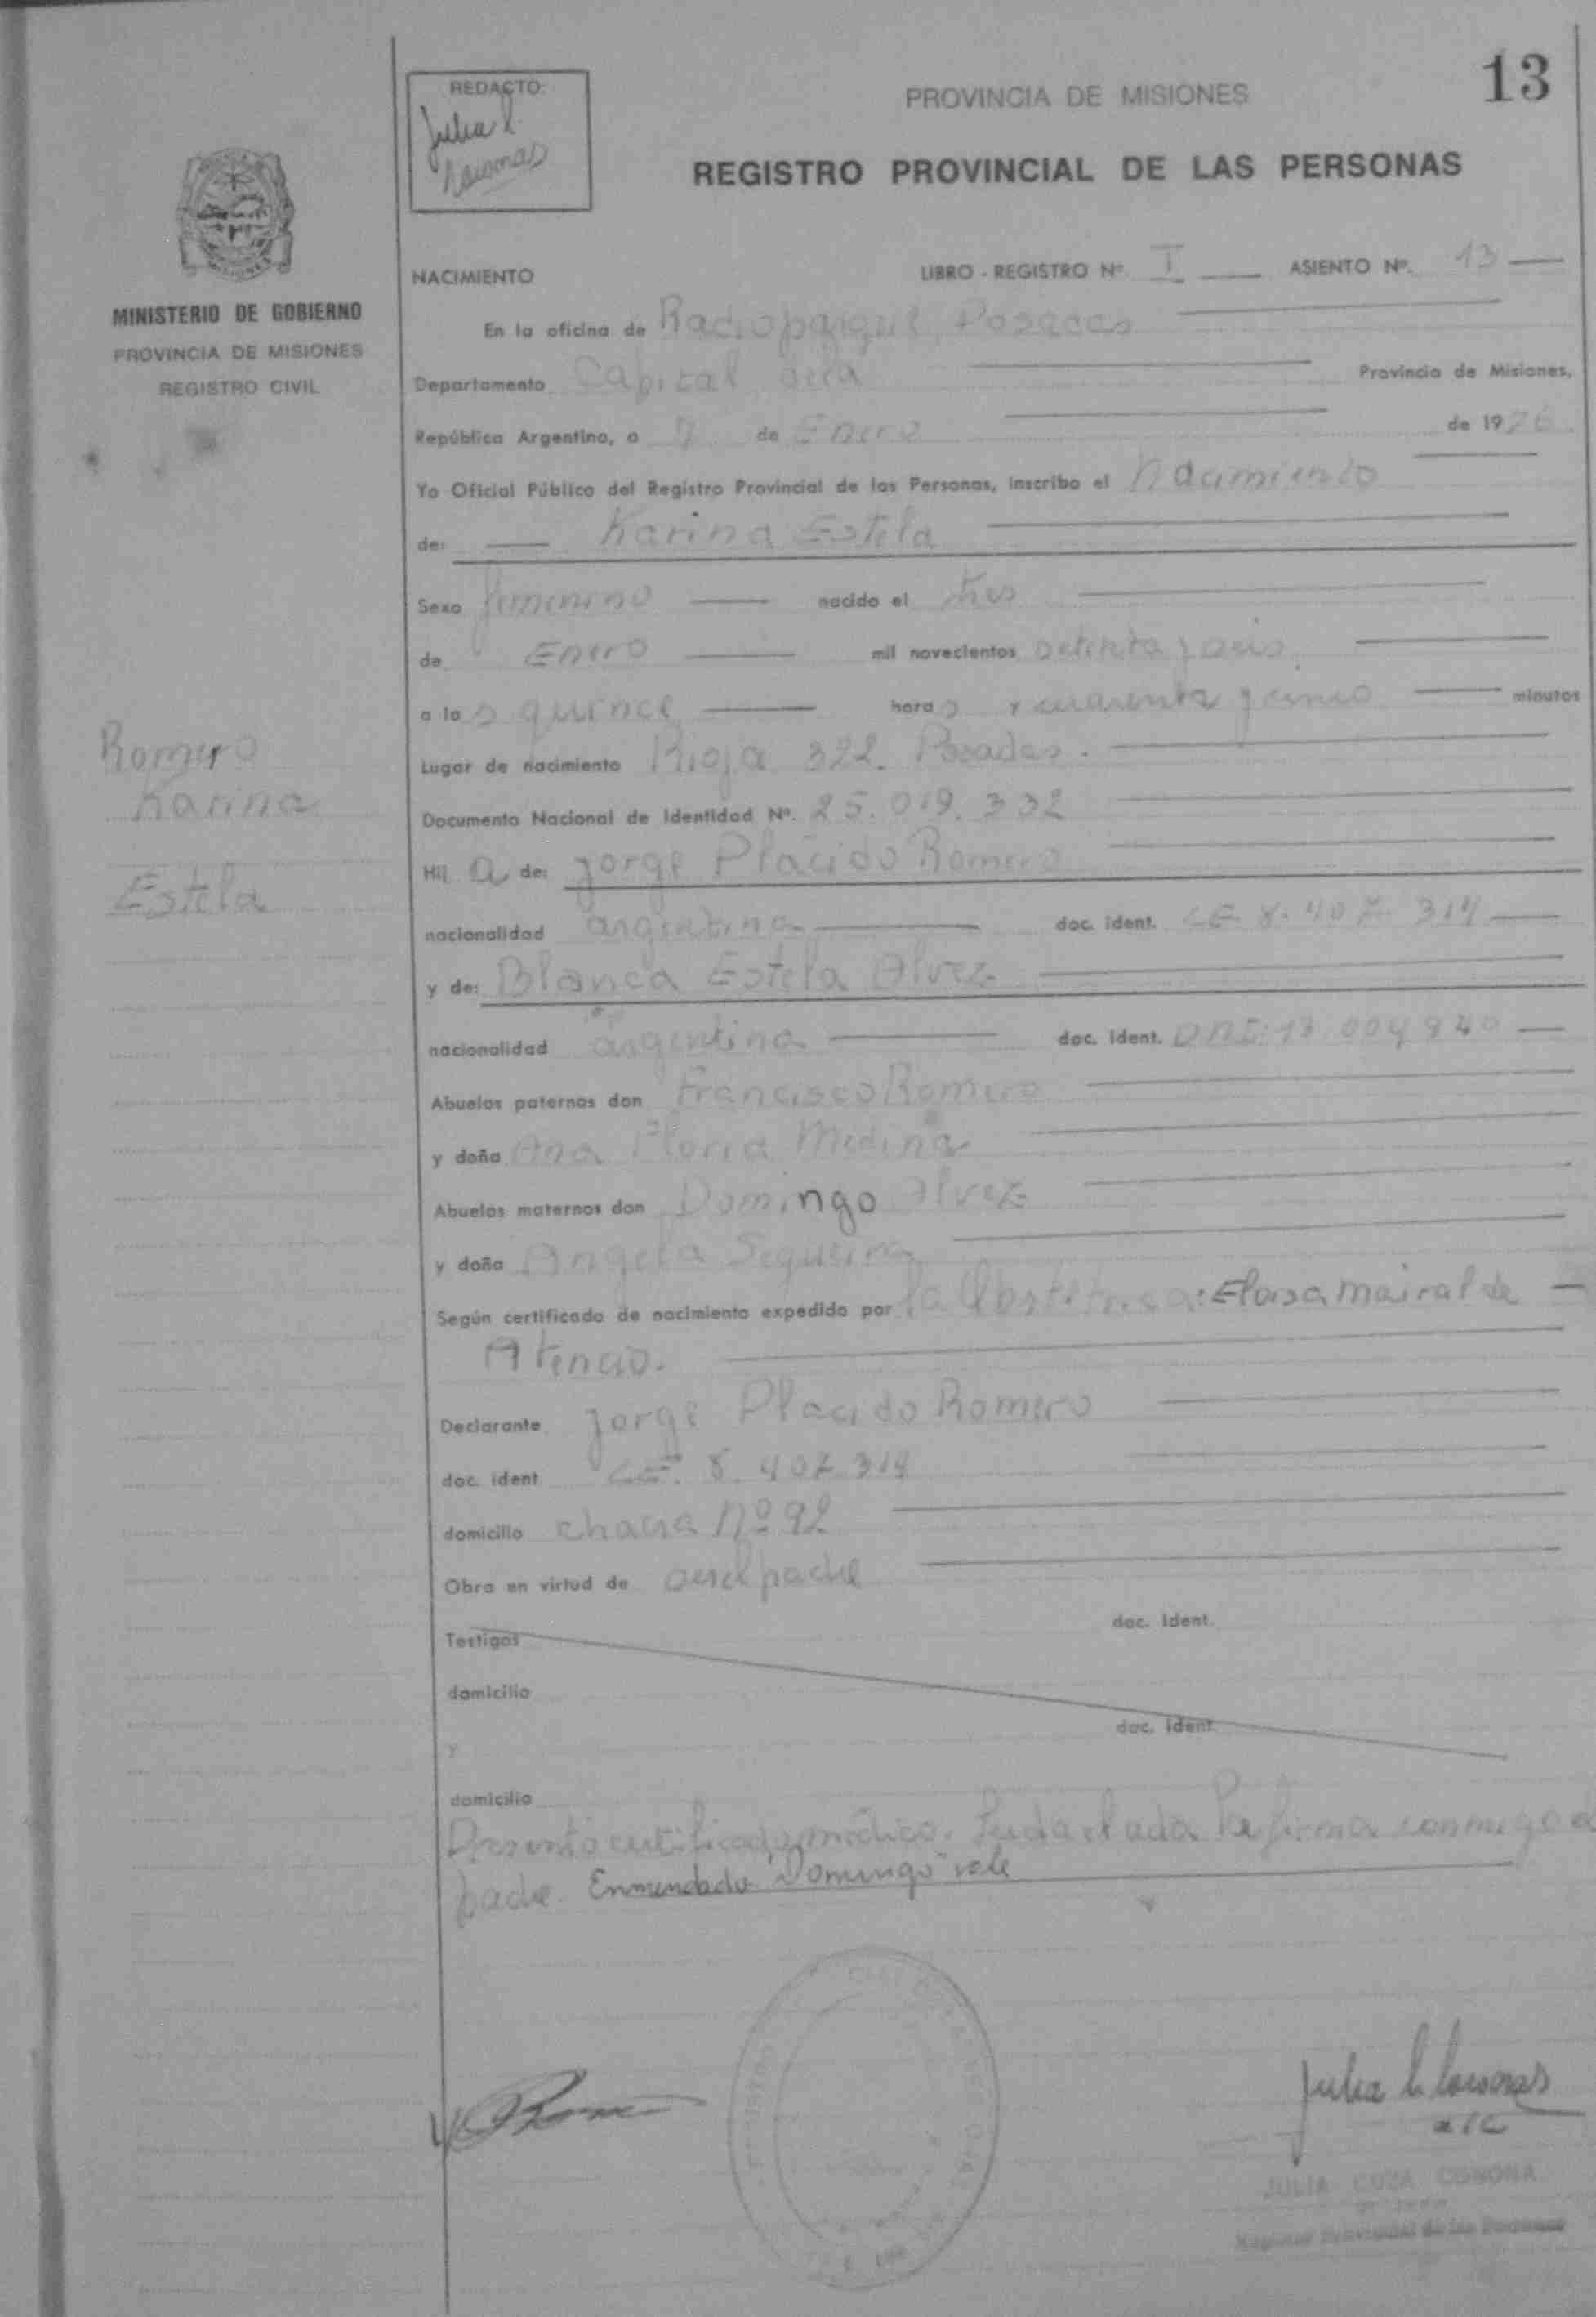 13
REDACTO:
Julia
PROVINCIA DE MISIONES
REGISTRO PROVINCIAL DE LAS PERSONAS
MINISTERIO DE GOBIERNO
PROVINCIA DE MISIONES
REGISTRO CIVIL
Romero
Karina
Estela
NACIMIENTO LIBRO - REGISTRO Nº I ASIENTO Nº. 13
En la oficina de Radioparque Posadas
Departamento Capital Provincia de Misiones,
República Argentina, a 7 de Enero de 1976
Yo Oficial Público del Registro Provincial de las Personas, inscribo el nacimiento
de: Karina Estela
Sexo femenino nacido el tres
de Enero mil novecientos setenta y seis
a las quince horas y cuarenta y cinco minutos
Lugar de nacimiento Rioja 322. Posadas.
Documento Nacional de Identidad Nº. 25.019.332
Hij a de: Jorge Placido Romero
nacionalidad argentina doc. ident. LE 8.407.314
y de: Blanca Estela Alvez
nacionalidad argentina doc. ident. DNI: 13.004940
Abuelos paternos don Francisco Romero
y doña Ana Medina
Abuelos maternos don Domingo Alvez
y doña Angela Sequeira
Según certificado de nacimiento expedido por la Obstetrica: Elorsa Mairal de
Atencio.
Declarante Jorge Placido Romero
doc. ident LE. 8.407.314
domicilio chacra Nº 92
Obra en virtud de ser el padre
Testigos doc. ident.
domicilio
y doc. ident.
domicilio
Presento certificado médico. Leida el acta la firma conmigo el
padre. Enmendado "Domingo" vale
Julia
a/c
JULIA
Registro Provincial de las Personas